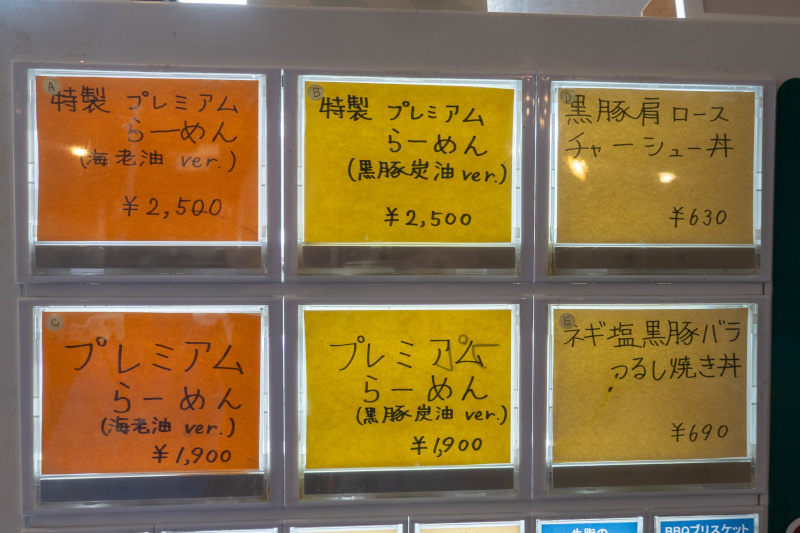 A
特製 プレミアム
らーめん
(海老油 ver.)
¥2,500
B
特製 プレミアム
らーめん
(黒豚炭油 ver.)
¥2,500
D
黒豚肩ロース
チャーシュー丼
¥630
C
プレミアム
らーめん
(海老油 ver.)
¥1,900
プレミアム
らーめん
(黒豚炭油 ver.)
¥1,900
E
ネギ塩黒豚バラ
つるし焼き丼
¥690
BBQブリスケット